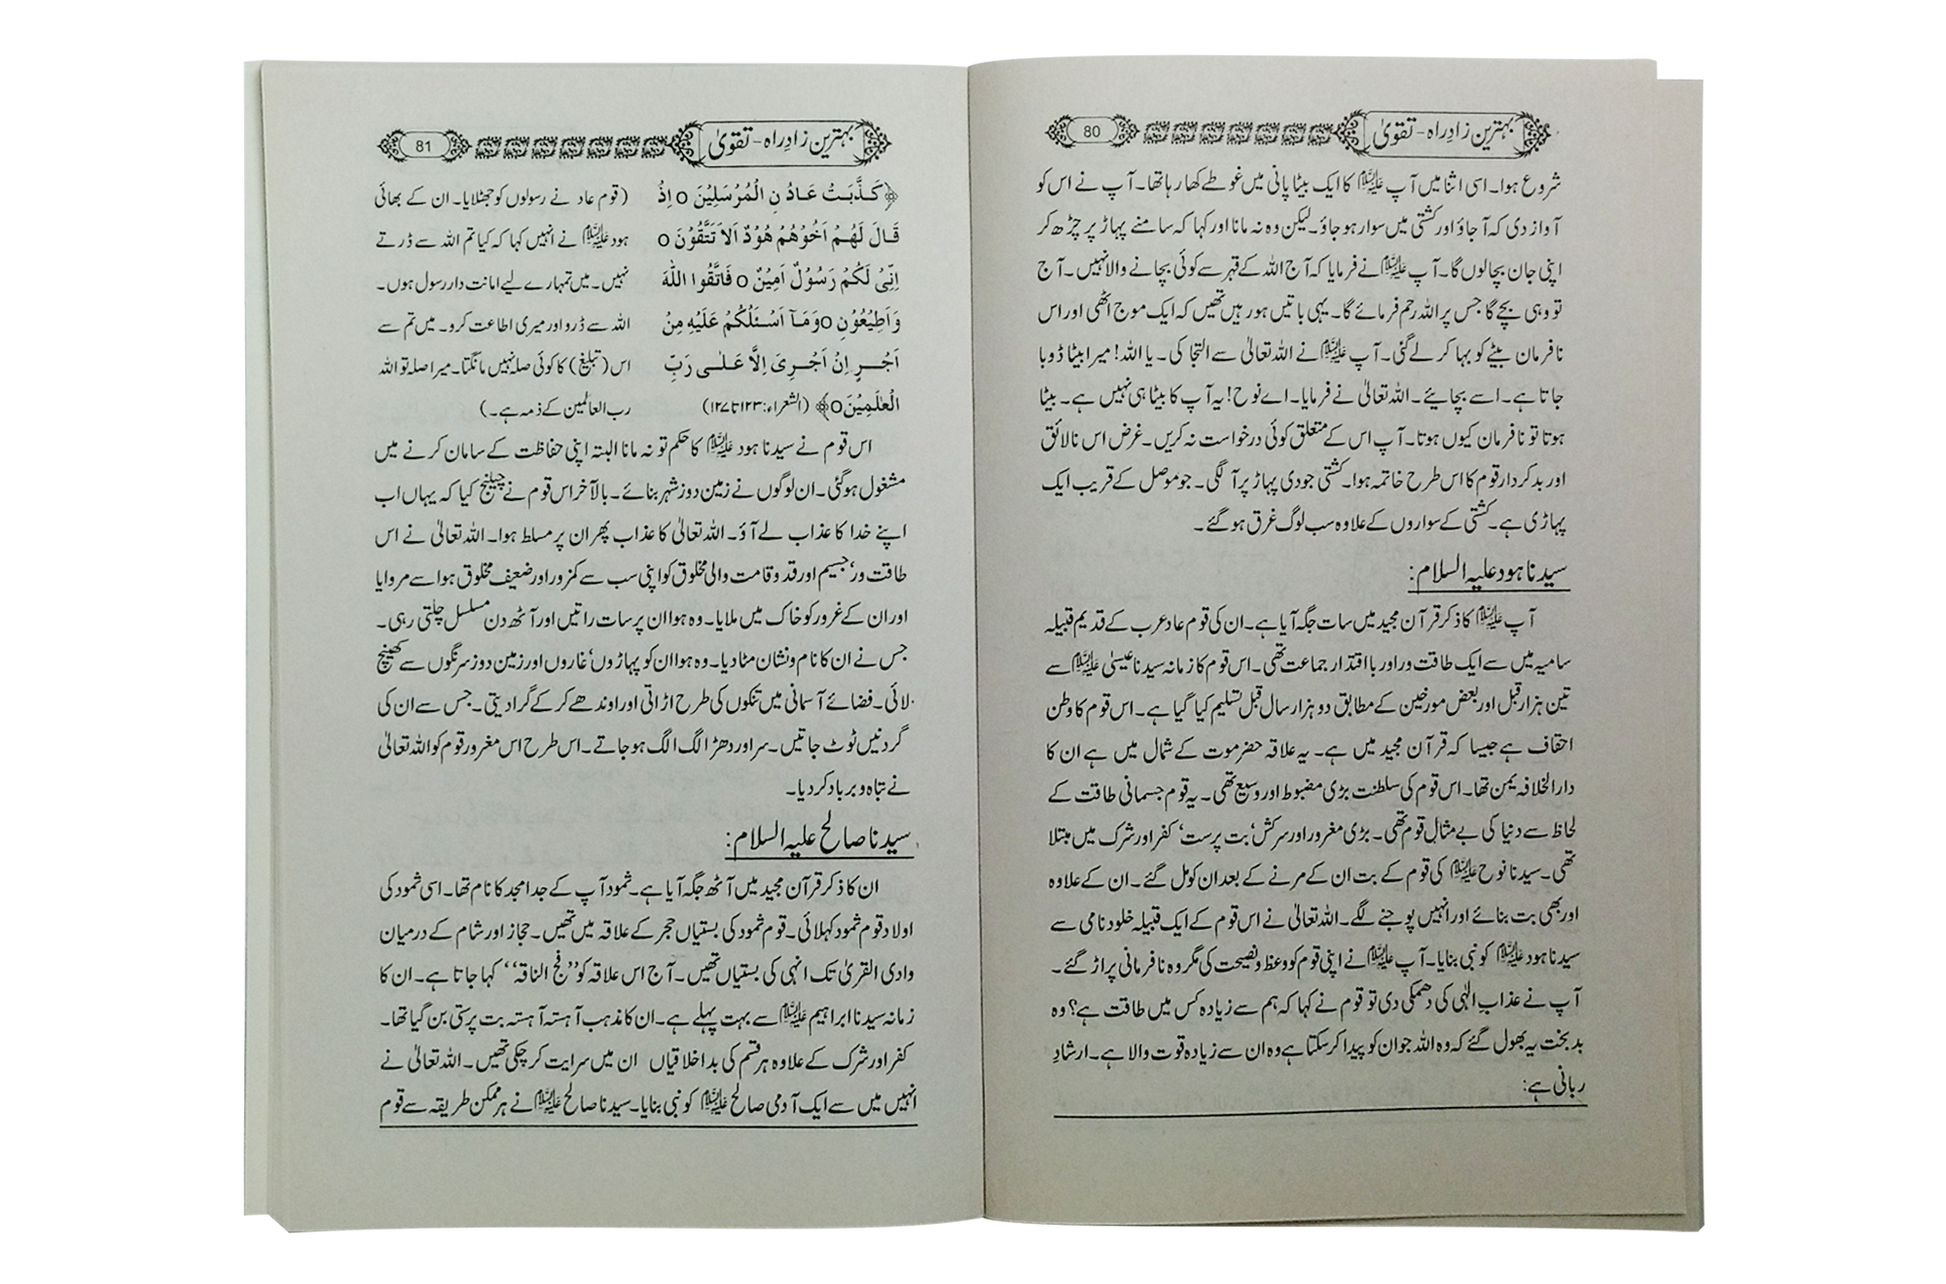 بہترین زادِراہ - تقویٰ
80
شروع ہوا۔ اسی اثنا میں آپ علیہ السلام کا ایک بیٹا پانی میں غوطے کھا رہا تھا۔ آپ نے اس کو
آواز دی کہ آ جاؤ اور کشتی میں سوار ہو جاؤ۔ لیکن وہ نہ مانا اور کہا کہ سامنے پہاڑ پر چڑھ کر
اپنی جان بچا لوں گا۔ آپ علیہ السلام نے فرمایا کہ آج اللہ کے قہر سے کوئی بچانے والا نہیں۔ آج
تو وہی بچے گا جس پر اللہ رحم فرمائے گا۔ یہی باتیں ہو رہیں تھیں کہ ایک موج اٹھی اور اس
نافرمان بیٹے کو بہا کر لے گئی۔ آپ علیہ السلام نے اللہ تعالیٰ سے التجا کی۔ یا اللہ! میرا بیٹا ڈوبا
جاتا ہے۔ اسے بچایئے۔ اللہ تعالیٰ نے فرمایا۔ اے نوح! یہ آپ کا بیٹا ہی نہیں ہے۔ بیٹا
ہوتا تو نافرمان کیوں ہوتا۔ آپ اس کے متعلق کوئی درخواست نہ کریں۔ غرض اس نالائق
اور بدکردار قوم کا اس طرح خاتمہ ہوا۔ کشتی جودی پہاڑ پر آ لگی۔ جو موصل کے قریب ایک
پہاڑی ہے۔ کشتی کے سواروں کے علاوہ سب لوگ غرق ہو گئے۔
سیدنا ہود علیہ السلام:
آپ علیہ السلام کا ذکر قرآن مجید میں سات جگہ آیا ہے۔ ان کی قوم عاد عرب کے قدیم قبیلہ
سامیہ میں سے ایک طاقت ور اور بااقتدار جماعت تھی۔ اس قوم کا زمانہ سیدنا عیسیٰ علیہ السلام سے
تین ہزار قبل اور بعض مورخین کے مطابق دو ہزار سال قبل تسلیم کیا گیا ہے۔ اس قوم کا وطن
احقاف ہے جیسا کہ قرآن مجید میں ہے۔ یہ علاقہ حضرموت کے شمال میں ہے ان کا
دارالخلافہ یمن تھا۔ اس قوم کی سلطنت بڑی مضبوط اور وسیع تھی۔ یہ قوم جسمانی طاقت کے
لحاظ سے دنیا کی بے مثال قوم تھی۔ بڑی مغرور اور سرکش، بت پرست، کفر اور شرک میں مبتلا
تھی۔ سیدنا نوح علیہ السلام کی قوم کے بت ان کے مرنے کے بعد ان کو مل گئے۔ ان کے علاوہ
اور بھی بت بنائے اور انہیں پوجنے لگے۔ اللہ تعالیٰ نے اس قوم کے ایک قبیلہ خلود نامی سے
سیدنا ہود علیہ السلام کو نبی بنایا۔ آپ علیہ السلام نے اپنی قوم کو وعظ و نصیحت کی مگر وہ نافرمانی پر اڑ گئے۔
آپ نے عذابِ الٰہی کی دھمکی دی تو قوم نے کہا کہ ہم سے زیادہ کس میں طاقت ہے؟ وہ
بدبخت یہ بھول گئے کہ وہ اللہ جو ان کو پیدا کر سکتا ہے وہ ان سے زیادہ قوت والا ہے۔ ارشادِ
ربانی ہے:
بہترین زادِراہ - تقویٰ
81
﴿كَذَّبَتْ عَادُ نِ الْمُرْسَلِيْنَ o اِذْ
قَالَ لَهُمْ اَخُوْهُمْ هُوْدٌ اَلاَ تَتَّقُوْنَ o
اِنِّىْ لَكُمْ رَسُوْلٌ اَمِيْنٌ o فَاتَّقُوا اللّٰهَ
وَاَطِيْعُوْنِ oوَمَآ اَسْئَلُكُمْ عَلَيْهِ مِنْ
اَجْرٍ اِنْ اَجْرِىَ اِلَّا عَلٰى رَبِّ
الْعٰلَمِيْنَ o﴾ (الشعراء: ۱۲۳ تا ۱۲۷)
(قوم عاد نے رسولوں کو جھٹلایا۔ ان کے بھائی
ہود علیہ السلام نے انہیں کہا کہ کیا تم اللہ سے ڈرتے
نہیں۔ میں تمہارے لیے امانت دار رسول ہوں۔
اللہ سے ڈرو اور میری اطاعت کرو۔ میں تم سے
اس (تبلیغ) کا کوئی صلہ نہیں مانگتا۔ میرا صلہ تو اللہ
رب العالمین کے ذمہ ہے۔)
اس قوم نے سیدنا ہود علیہ السلام کا حکم تو نہ مانا البتہ اپنی حفاظت کے سامان کرنے میں
مشغول ہو گئی۔ ان لوگوں نے زمین دوز شہر بنائے۔ بالآخر اس قوم نے چیلنج کیا کہ یہاں اب
اپنے خدا کا عذاب لے آؤ۔ اللہ تعالیٰ کا عذاب پھر ان پر مسلط ہوا۔ اللہ تعالیٰ نے اس
طاقت ور، جسیم اور قد و قامت والی مخلوق کو اپنی سب سے کمزور اور ضعیف مخلوق ہوا سے مروایا
اور ان کے غرور کو خاک میں ملایا۔ وہ ہوا ان پر سات راتیں اور آٹھ دن مسلسل چلتی رہی۔
جس نے ان کا نام و نشان مٹا دیا۔ وہ ہوا ان کو پہاڑوں، غاروں اور زمین دوز سرنگوں سے کھینچ
لائی۔ فضائے آسمانی میں تنکوں کی طرح اڑاتی اور اوندھے کر کے گرا دیتی۔ جس سے ان کی
گردنیں ٹوٹ جاتیں۔ سر اور دھڑ الگ الگ ہو جاتے۔ اس طرح اس مغرور قوم کو اللہ تعالیٰ
نے تباہ و برباد کر دیا۔
سیدنا صالح علیہ السلام:
ان کا ذکر قرآن مجید میں آٹھ جگہ آیا ہے۔ ثمود آپ کے جد امجد کا نام تھا۔ اسی ثمود کی
اولاد قوم ثمود کہلائی۔ قوم ثمود کی بستیاں حجر کے علاقہ میں تھیں۔ حجاز اور شام کے درمیان
وادی القریٰ تک انہی کی بستیاں تھیں۔ آج اس علاقہ کو ’’فج الناقہ‘‘ کہا جاتا ہے۔ ان کا
زمانہ سیدنا ابراہیم علیہ السلام سے بہت پہلے ہے۔ ان کا مذہب آہستہ آہستہ بت پرستی بن گیا تھا۔
کفر اور شرک کے علاوہ ہر قسم کی بداخلاقیاں ان میں سرایت کر چکی تھیں۔ اللہ تعالیٰ نے
انہیں میں سے ایک آدمی صالح علیہ السلام کو نبی بنایا۔ سیدنا صالح علیہ السلام نے ہر ممکن طریقہ سے قوم